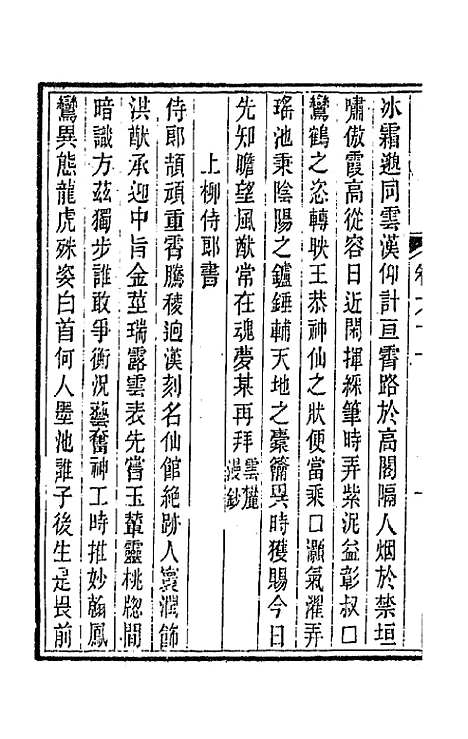 冰霜邈同雲漢仰計亘霄路於高閣隔人烟於禁垣
嘯傲霞高從容日近閑揮綵筆時弄紫泥益彰叔口
鸞鶴之恣轉映王恭神仙之狀便當乘口灝氣濯弄
瑤池秉陰陽之鑪錘輔天地之橐籥異時獲賜今日
先知瞻望風猷常在魂夢某再拜雲麓漫鈔
上柳侍郎書
侍郎頡頏重霄騰稜迥漢刻名仙館絶跡人寰潤飾
洪猷承迎中旨金莖瑞露雲表先嘗玉輦靈桃牎間
暗識方茲獨步誰敢爭衡況藝奮神工時推妙翰鳳
鸞異態龍虎殊姿白首何人墨池誰子後生是畏前